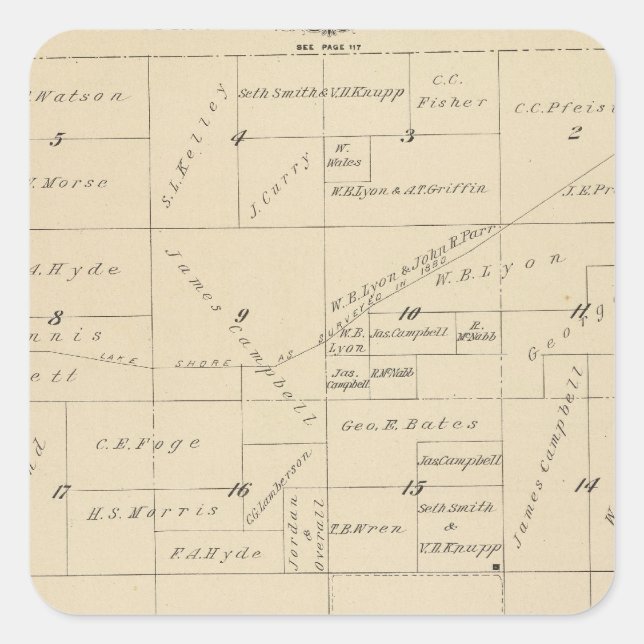 SEE PAGE 117
Watson
5
S.L. Kelley
4
Seth Smith & V.D. Knupp
C.C.
Fisher
3
C.C. Pfeis
2
Morse
J. Curry
W.
Wales
W.B. Lyon & A.T. Griffin
J.E. Pr
A. Hyde
8
nnis
James Campbell
9
W.B. Lyon & John R. Parr
W.B. Lyon
LAKE SHORE AS SURVEYED IN 1880
10
11
Georg
W.B.
Lyon
Jas. Campbell
R.
McNabb
ett
Jas.
Campbell
R. McNabb
Geo. E. Bates
James Campbell
C.E. Foge
17
16
C.G. Lamberson
Jas. Campbell
15
14
H.S. Morris
Jordan
&
Overall
T.B. Wren
Seth Smith
&
V.D. Knupp
F.A. Hyde